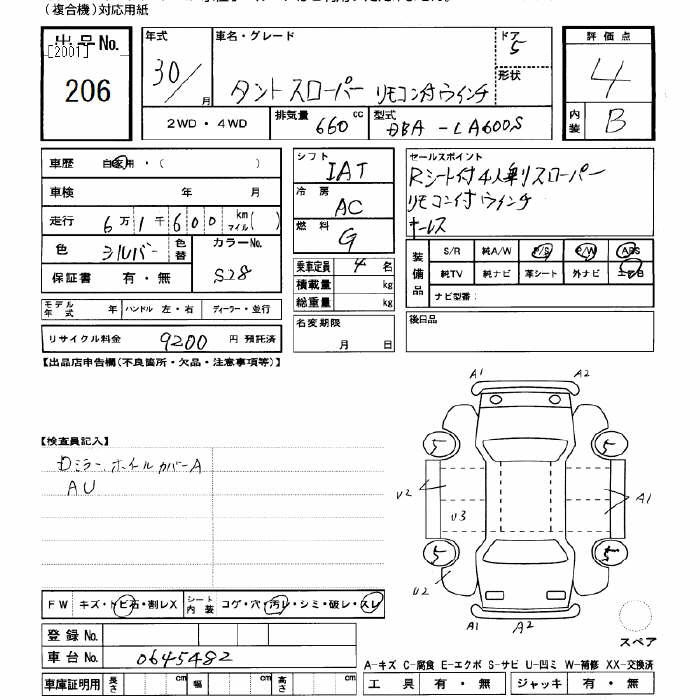 (複合機)対応用紙
出品No.
[2001]
206
年式
30/
月
車名・グレード
タント スローパー リモコン付ウインチ
ドア
5
形状
2WD・4WD
排気量
660
cc
型式
DBA-LA600S
評価点
4
内装
B
車歴
自家用・( )
車検
年 月
走行
6万1千600
km
マイル( )
色
シルバー
色替
カラーNo.
S28
保証書 有・無
モデル年式
年
ハンドル 左・右
ディーラー・並行
リサイクル料金
9200
円 預託済
シフト
IAT
冷房
AC
燃料
G
乗車定員
4
名
積載量
kg
総重量
kg
名変期限
月 日
セールスポイント
Rシート付4人乗りスローパー
リモコン付ウインチ
キーレス
装備品
S/R
純A/W
P/S
P/W
ABS
純TV
純ナビ
革シート
外ナビ
エアB
ナビ型番:
後日品
【出品店申告欄(不良箇所・欠品・注意事項等)】
【検査員記入】
Dミラー、ホイルカバーA
AU
A1
A2
5
5
U2
U3
A1
5
5
U2
A1
A2
スペア
FW
キズ・トビ石・割レX
シート内装
コゲ・穴・汚レ・シミ・破レ・スレ
登録No.
車台No.
0645482
車庫証明用
長さ
cm
幅
cm
高さ
cm
A-キズ C-腐食 E-エクボ S-サビ U-凹ミ W-補修 XX-交換済
工具
有・無
ジャッキ
有・無